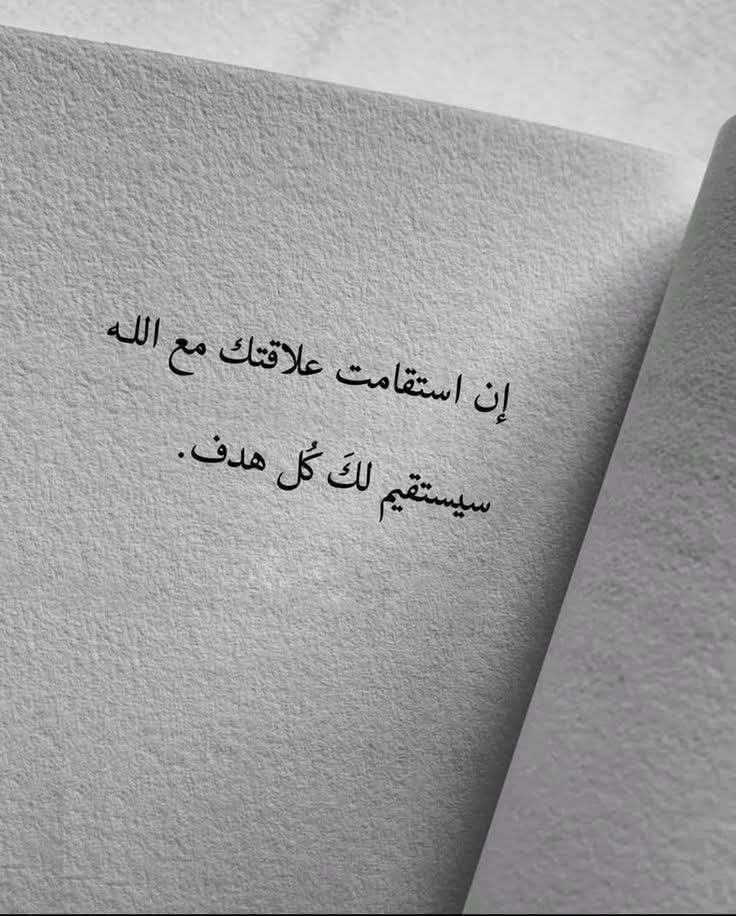 إن استقامت علاقتك مع الله
سيستقيم لكَ كُل هدف.